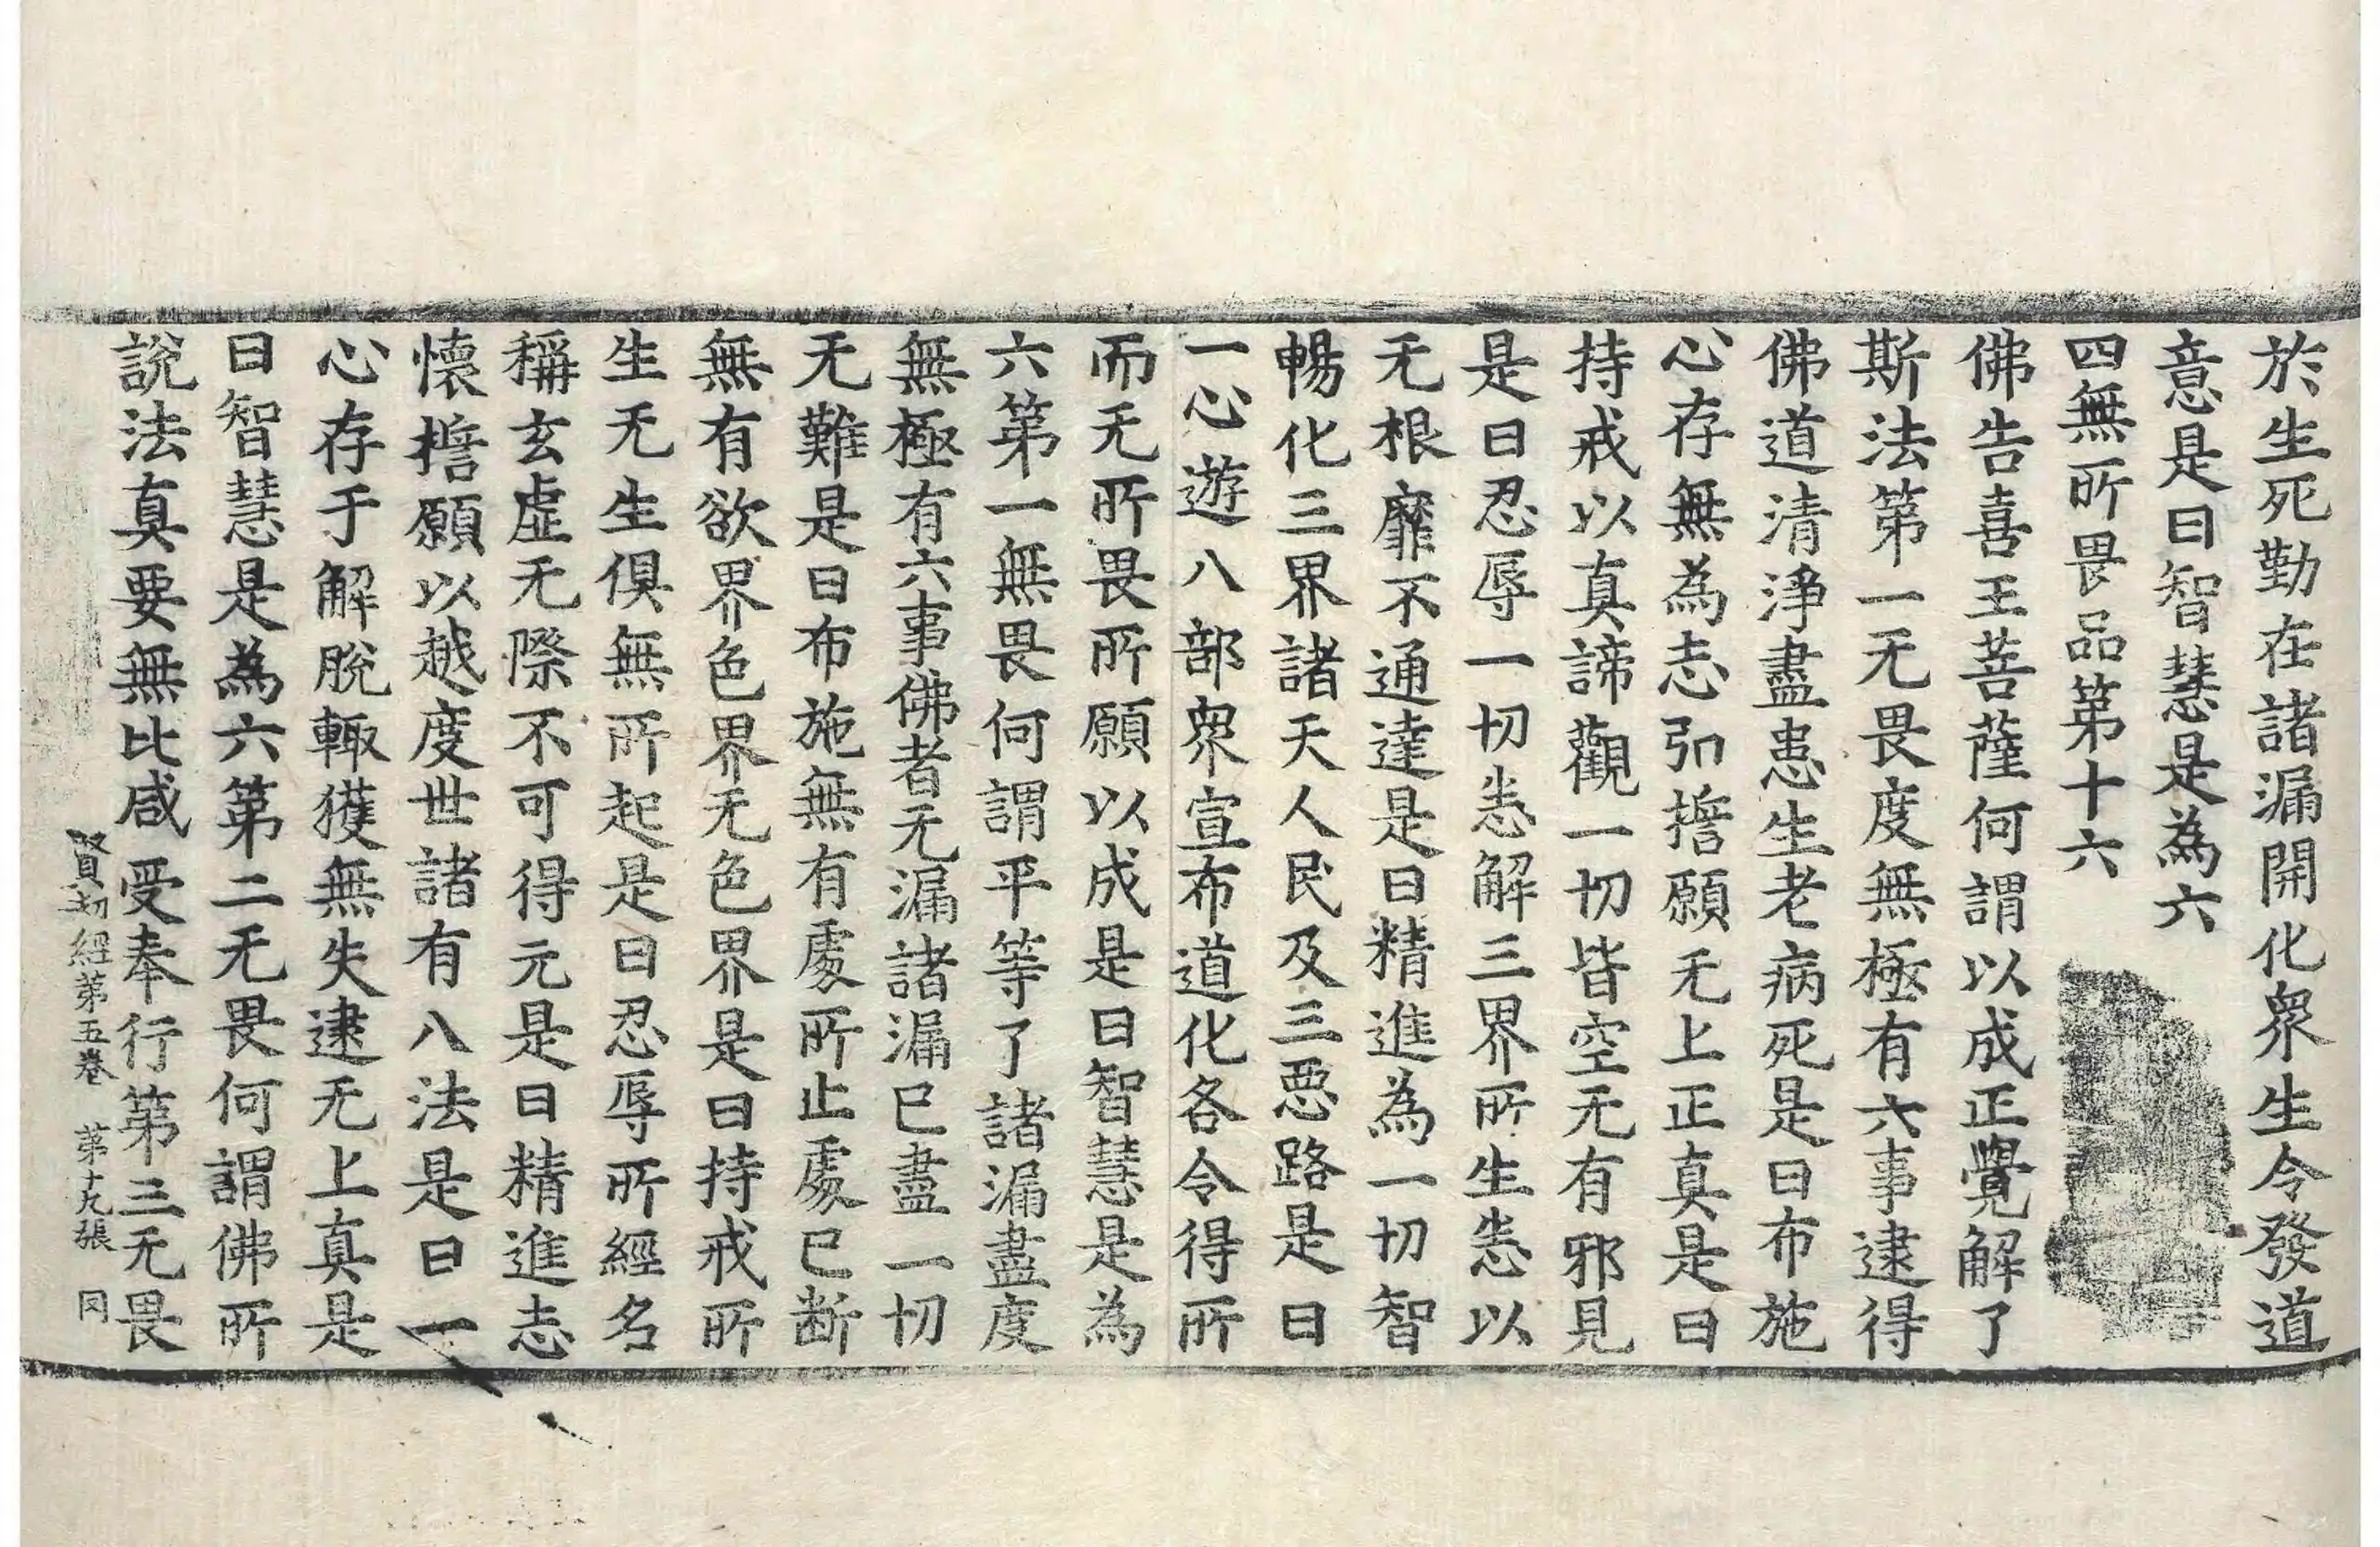 於生死勤在諸漏開化衆生令發道
意是曰智慧是為六
四無所畏品第十六
佛告喜王菩薩何謂以成正覺解了
斯法第一无畏度無極有六事逮得
佛道清淨盡患生老病死是曰布施
心存無為志弘擔願无上正真是曰
持戒以真諦觀一切皆空无有邪見
是曰忍辱一切悉解三界所生悉以
无根靡不通達是曰精進為一切智
暢化三界諸天人民及三惡路是曰
一心遊八部衆宣布道化各令得所
而无所畏所願以成是曰智慧是為
六第一無畏何謂平等了諸漏盡度
無極有六事佛者无漏諸漏已盡一切
无難是曰布施無有處所止處已断
無有欲界色界无色界是曰持戒所
生无生俱無所起是曰忍辱所經名
稱玄虛无際不可得元是曰精進志
懷擔願以越度世諸有八法是曰一
心存于解脫輙獲無失逮无上真是
曰智慧是為六第二无畏何謂佛所
說法真要無比咸受奉行第三无畏
賢劫經第五卷 第十九張 同